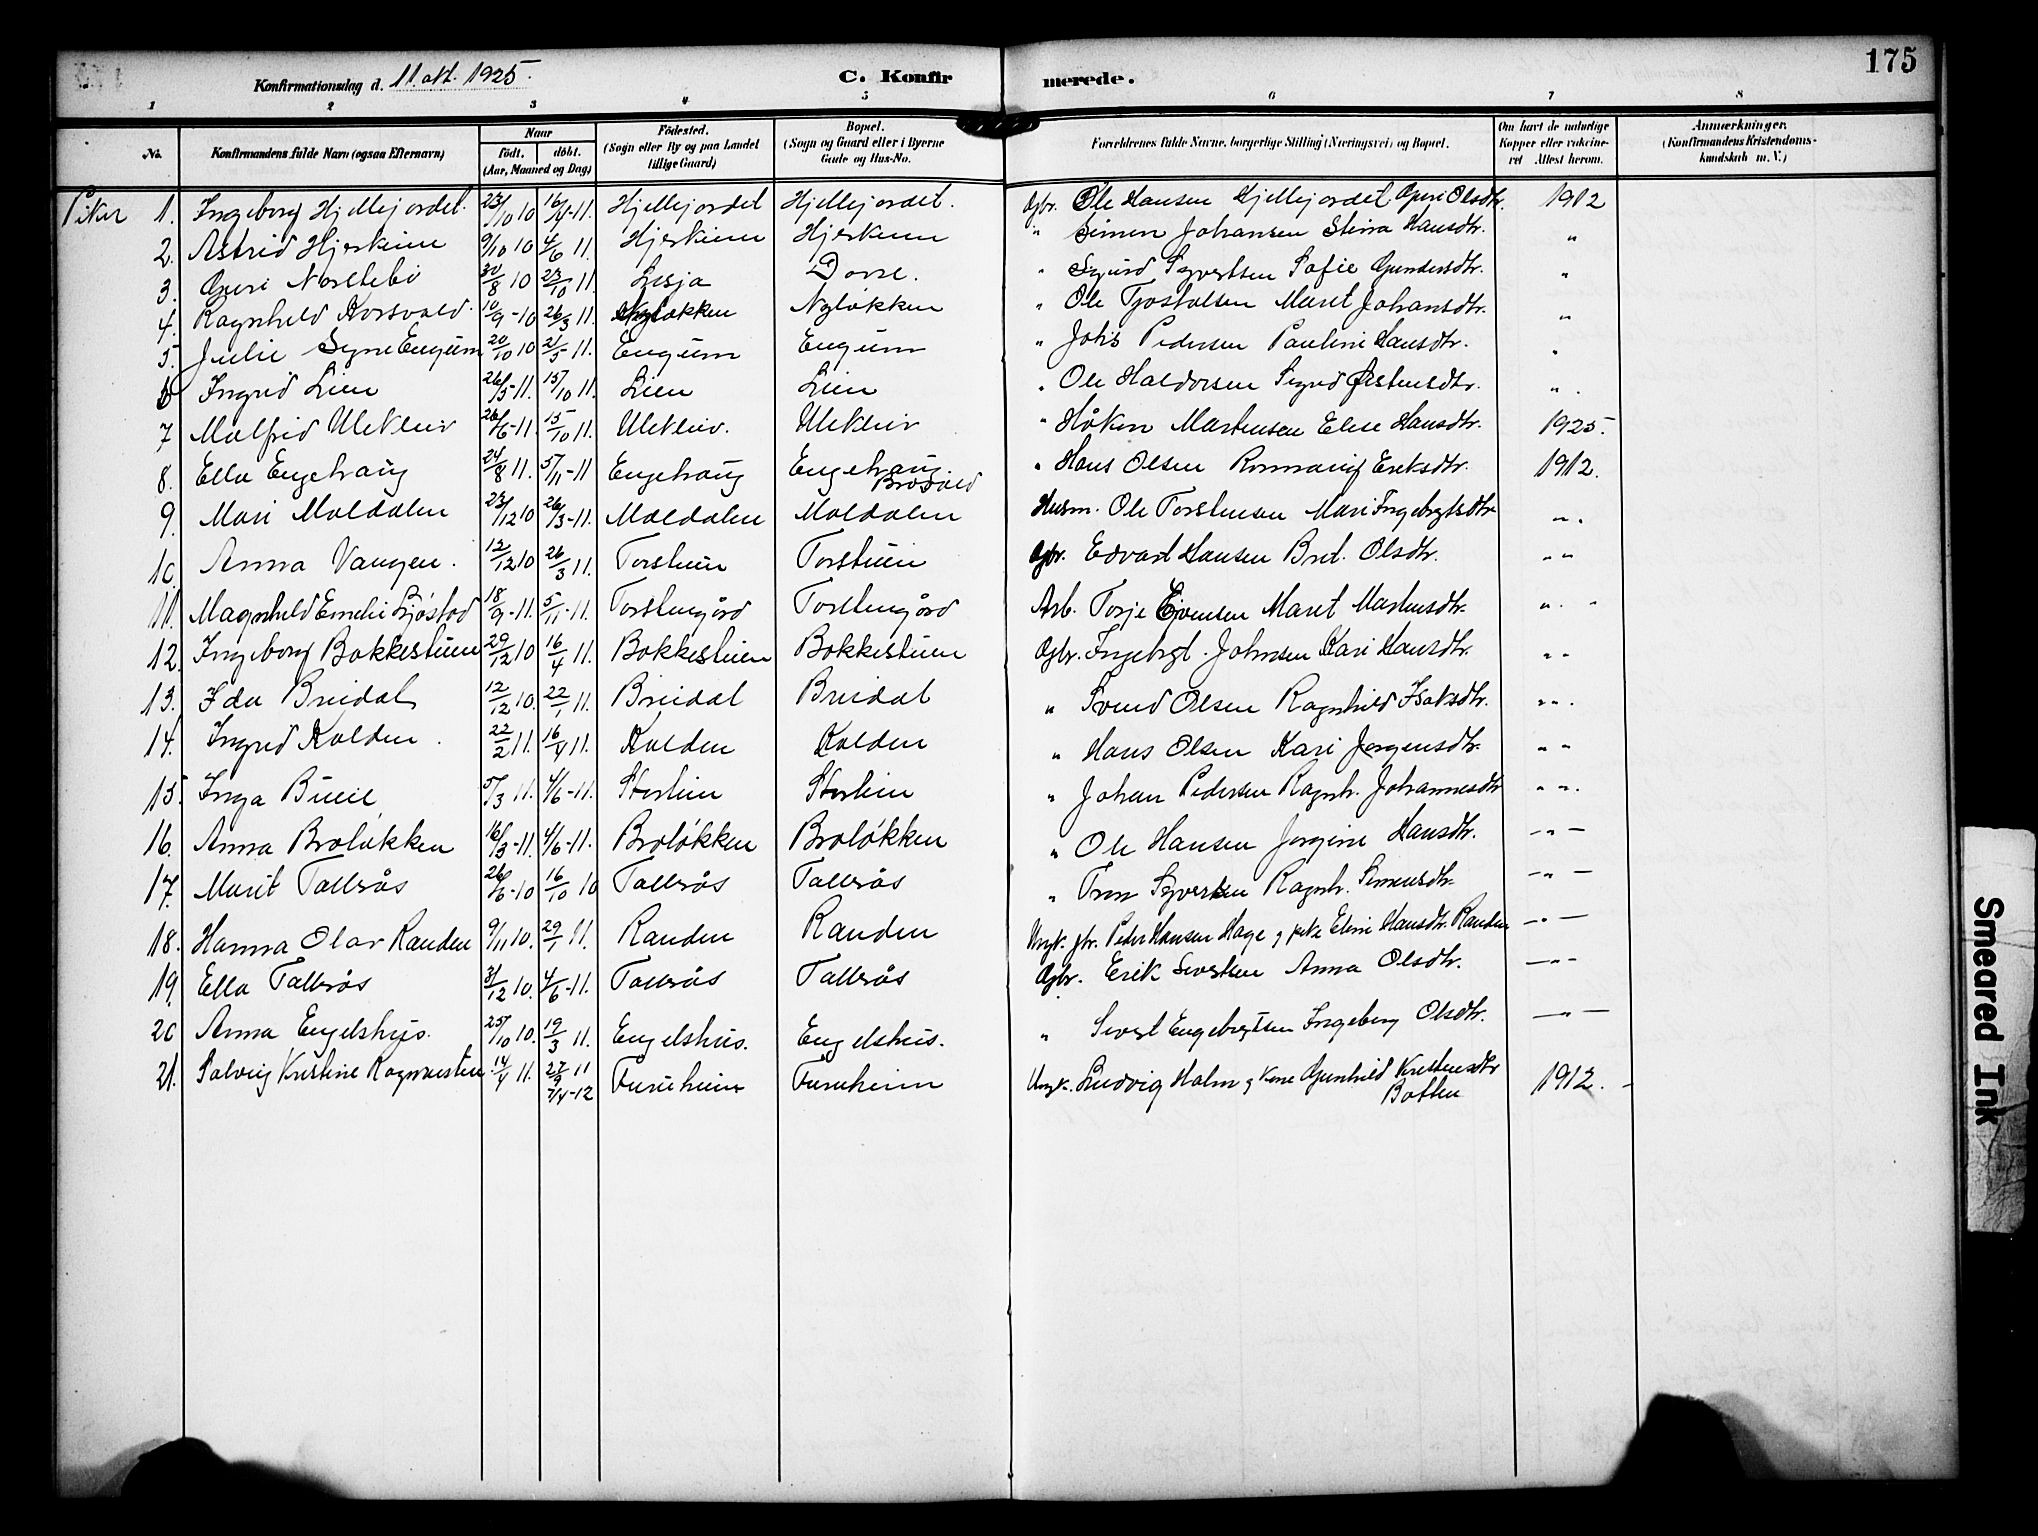 175
Konfirmationsdag d. 11. okt. 1925. C. Konfirmerede.
1 2 3 4 5 6 7 8
No. Konfirmandens fulde Navn (ogsaa Efternavn) Naar födt. döbt. (Aar, Maaned og Dag) Födested. (Sogn eller By og paa Landet tillige Gaard) Bopæl. (Sogn og Gaard eller i Byerne Gade og Hus-No. Forældrenes fulde Navne, borgerlige Stilling (Næringsvei) og Bopæl. Om havt de naturlige Kopper eller vaccineret Attest herom. Anmærkninger. (Konfirmandens Kristendomskundskab m. V.)
Piker 1. Ingeborg Hjellejordet. 23/10 10 16/4-11. Hjellejordet Hjellejordet. Gbr. Ole Hansen Hjellejordet Guri Olsdtr. 1912
2. Astrid Hjerkinn 9/10 10 4/6 11. Hjerkinn Hjerkinn " Simen Johansen Stina Hansdtr. "
3. Guri Norstebö 30/8 10 23/10 11. Lesja Dovre. " Sigurd Syvertsen Sofie Gundersdtr. "
4. Ragnhild Korsvold. 10/9-10 26/3 11. Nyløkken Nyløkken " Ole Tjostolsen Marit Johansdtr. "
5. Julie Signe Engum 20/10 10 21/5 11. Engum Engum " Johs Pedersen Pauline Hansdtr. "
6 Ingrid Lien 26/5-11. 15/10 11. Lien Lien " Ole Haldorsen Sigrid Østensdtr. " .
7 Malfrid Ulekleiv 26/6-11. 15/10 11. Ulekleiv. Ulekleiv " Håken Martensen Elise Hansdtr. 1925.
8. Ella Engehaug 24/8 11. 5/11-11 Engehaug Engehaug. Brovold " Hans Olsen Ronnaug Eriksdtr. 1912.
9. Mari Moldalen 23/12 10 26/3-11. Moldalen Moldalen Husm. Ole Torstensen Mari Ingebrigtsdtr " .
10 Anna Vangen. 12/12 10 26/3 11. Torstuen Torstuen Gbr. Edvart Hansen Brit. Olsdtr. " "
11. Magnhild Emelie Sjøstad 18/9-11. 5/11-11. Torstengård Torstengård Arb. Torje Eivensen Marit Martensdtr. " "
12. Ingeborg Bakkestuen 29/12 10 16/4 11. Bakkestuen Bakkestuen Gbr. Ingebrgt. Johnsen Kari Hansdtr. " "
13. Ida Breidal 12/12 10. 22/1 11. Breidal Breidal " Svend Olsen Ragnhild Isaksdtr. " " .
14. Ingrid Kolden. 22/2 11. 16/4 11. Kolden Kolden " Hans Olsen Kari Jørgensdtr. " "
15. Inga Bueie 5/3 11. 4/6-11. Storlien Storlien " Johan Pedersen Ragnh. Johannesdtr " " .
16. Anna Broløkken 16/3-11. 4/6-11. Broløkken Broløkken " Ole Hansen Jørgine Hansdtr. - " -
17. Marit Tallerås 26/6-10 16/10 10 Tallerås Tallerås " Tron Syvertsen Ragnh. Simensdtr. - " -
18. Hanna Olar Randen 9/11 10. 29/1 11. Randen Randen Ungk. gbr. Peder Hansen Hage og pike Eline Hansdtr. Randen - " -
19. Ella Tallerås 31/12 10. 4/6-11. Tallerås Tallerås Gbr. Erik Sivertsen Anna Olsdtr. - " -
20 Anna Engelshus. 25/10 10. 19/3 11. Engelshus. Engelshus. " Sivert Engebrigtsen Ingeborg Olsdtr. - " -
21. Solveig Kristine Ragnvesten. 14/4 11. 27/9 11 7/4-12 Furuheim Furuheim Ungk. Ludvig Holm og Gunhild Kristensdtr Botten 1912. -
Smeared Ink